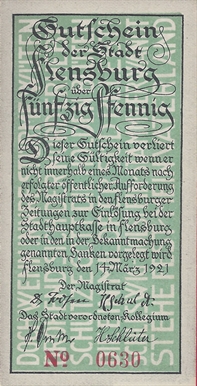 Gutschein
der Stadt
Flensburg
über
fünfzig Pfennig
Dieser Gutschein verliert
seine Gültigkeit wenn er
nicht innerhalb eines Monats nach
erfolgter öffentlicher Aufforderung
des Magistrats in den flensburger
Zeitungen zur Einlösung bei der
Stadthauptkasse in flensburg
oder in den in der Bekanntmachung
genannten Banken vorgelegt wird
flensburg den 14. März 1921
Der Magistrat
Das Stadtverordneten-Kollegium
H. Schlüter
No 0630